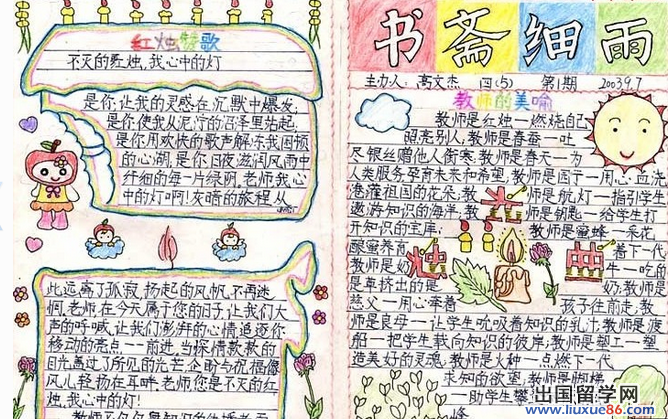 红烛赞歌
不灭的红烛,我心中的灯
是你,让我的灵感在沉默中爆发;
是你,使我从泥泞的沼泽里站起;
是你,用欢快的歌声解冻我困顿
的心湖,是你,日夜滋润风雨中
纤细的每一片绿阴,老师,我心
中的灯啊!灰暗的旅程从
此远离了孤寂,扬起的风帆,不再迷
惘,老师,在今天属于您的日子,让我们大
声的呼喊,让我们澎湃的心情追逐你
移动的亮点——前进,当深情款款的
目光盖过了所见的光芒,企盼与祝福像
风儿轻扬在耳畔,老师,您是不灭的红
烛,我心中的灯!
书斋细雨
主办人:高文杰 四(5) 第1期 2003.9.7
教师的美喻
教师是红烛—燃烧自己
照亮别人,教师是春蚕—吐
尽银丝赠他人御寒,教师是春天—为
人类服务孕育未来和希望,教师是园丁—用心血浇
港灌祖国的花朵,教师是航灯—指引学生
遨游知识的海洋,教师是钥匙—给学生打
开知识的宝库;教师是蜜蜂—采花
酿蜜养育着下一代
教师是奶牛—吃的
是草挤出的是奶,教师是
慈父—用心牵着孩子往前走,教
师是良母—让学生吮吸着知识的乳汁,教师是渡
船—把学生载向知识的彼岸,教师是塑工—塑
造美好的灵魂,教师是火种—点燃下一代
求知的欲望,教师是脚梯
—助学生攀
峰
光
烛
典
出国留学网
www.liuxue86.com